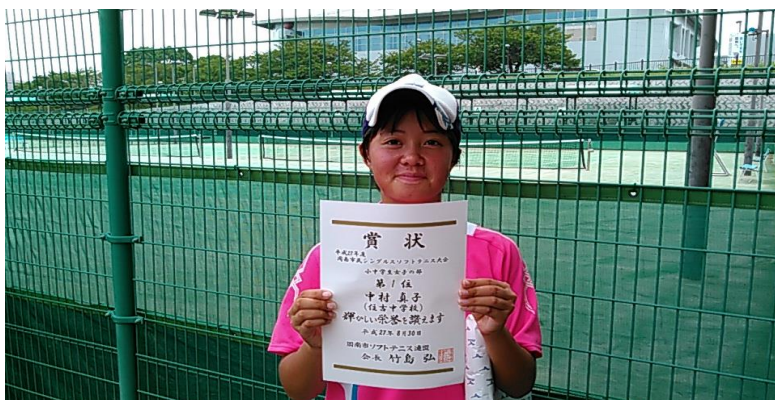 賞状
平成27年度
周南市民シングルスソフトテニス大会
小中学生女子の部
第1位
中村 真子
(住吉中学校)
輝かしい栄誉を讃えます
平成27年8月30日
周南市ソフトテニス連盟
会長 竹島 弘